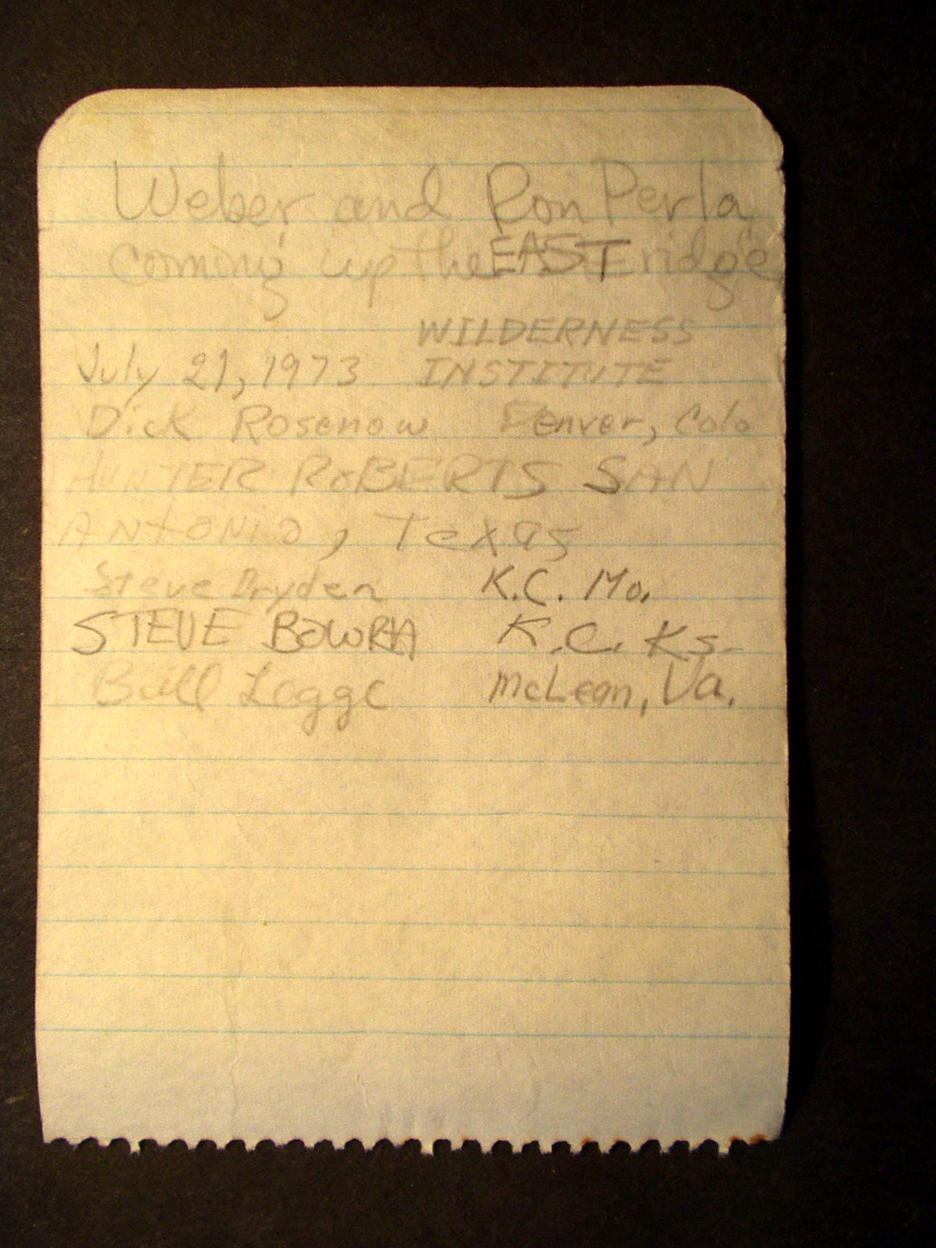 Weber and Ron Perla
coming up the EAST ridge
WILDERNESS
July 21, 1973 INSTITUTE
Dick Rosenow Denver, Colo
HUNTER ROBERTS SAN
ANTONIO, Texas
Steve Dryden K.C. Mo.
STEVE BOWRA K.C. Ks.
Bill Legge McLean, Va.